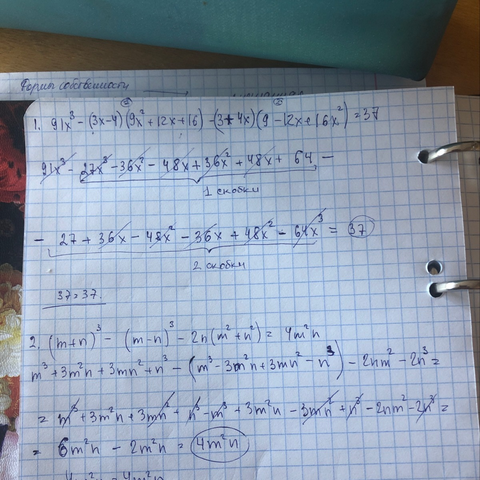 Форми собственности
1. 91x³ - (3x-4)(9x²+12x+16) - (3+4x)(9-12x+16x²) = 37
91x³ - 27x³ - 36x² - 48x + 36x² + 48x + 64 -
1 скобки
- 27 + 36x - 48x² - 36x + 48x² - 64x³ = 37
2 скобки
37=37.
2. (m+n)³ - (m-n)³ - 2n(m²+n²) = 4m²n
m³+3m²n+3mn²+n³ - (m³-3m²n+3mn²-n³) - 2nm²-2n³ =
= m³+3m²n+3mn²+n³-m³+3m²n-3mn²+n³-2nm²-2n³ =
= 6m²n - 2m²n = 4m²n
4m²n = 4m²n